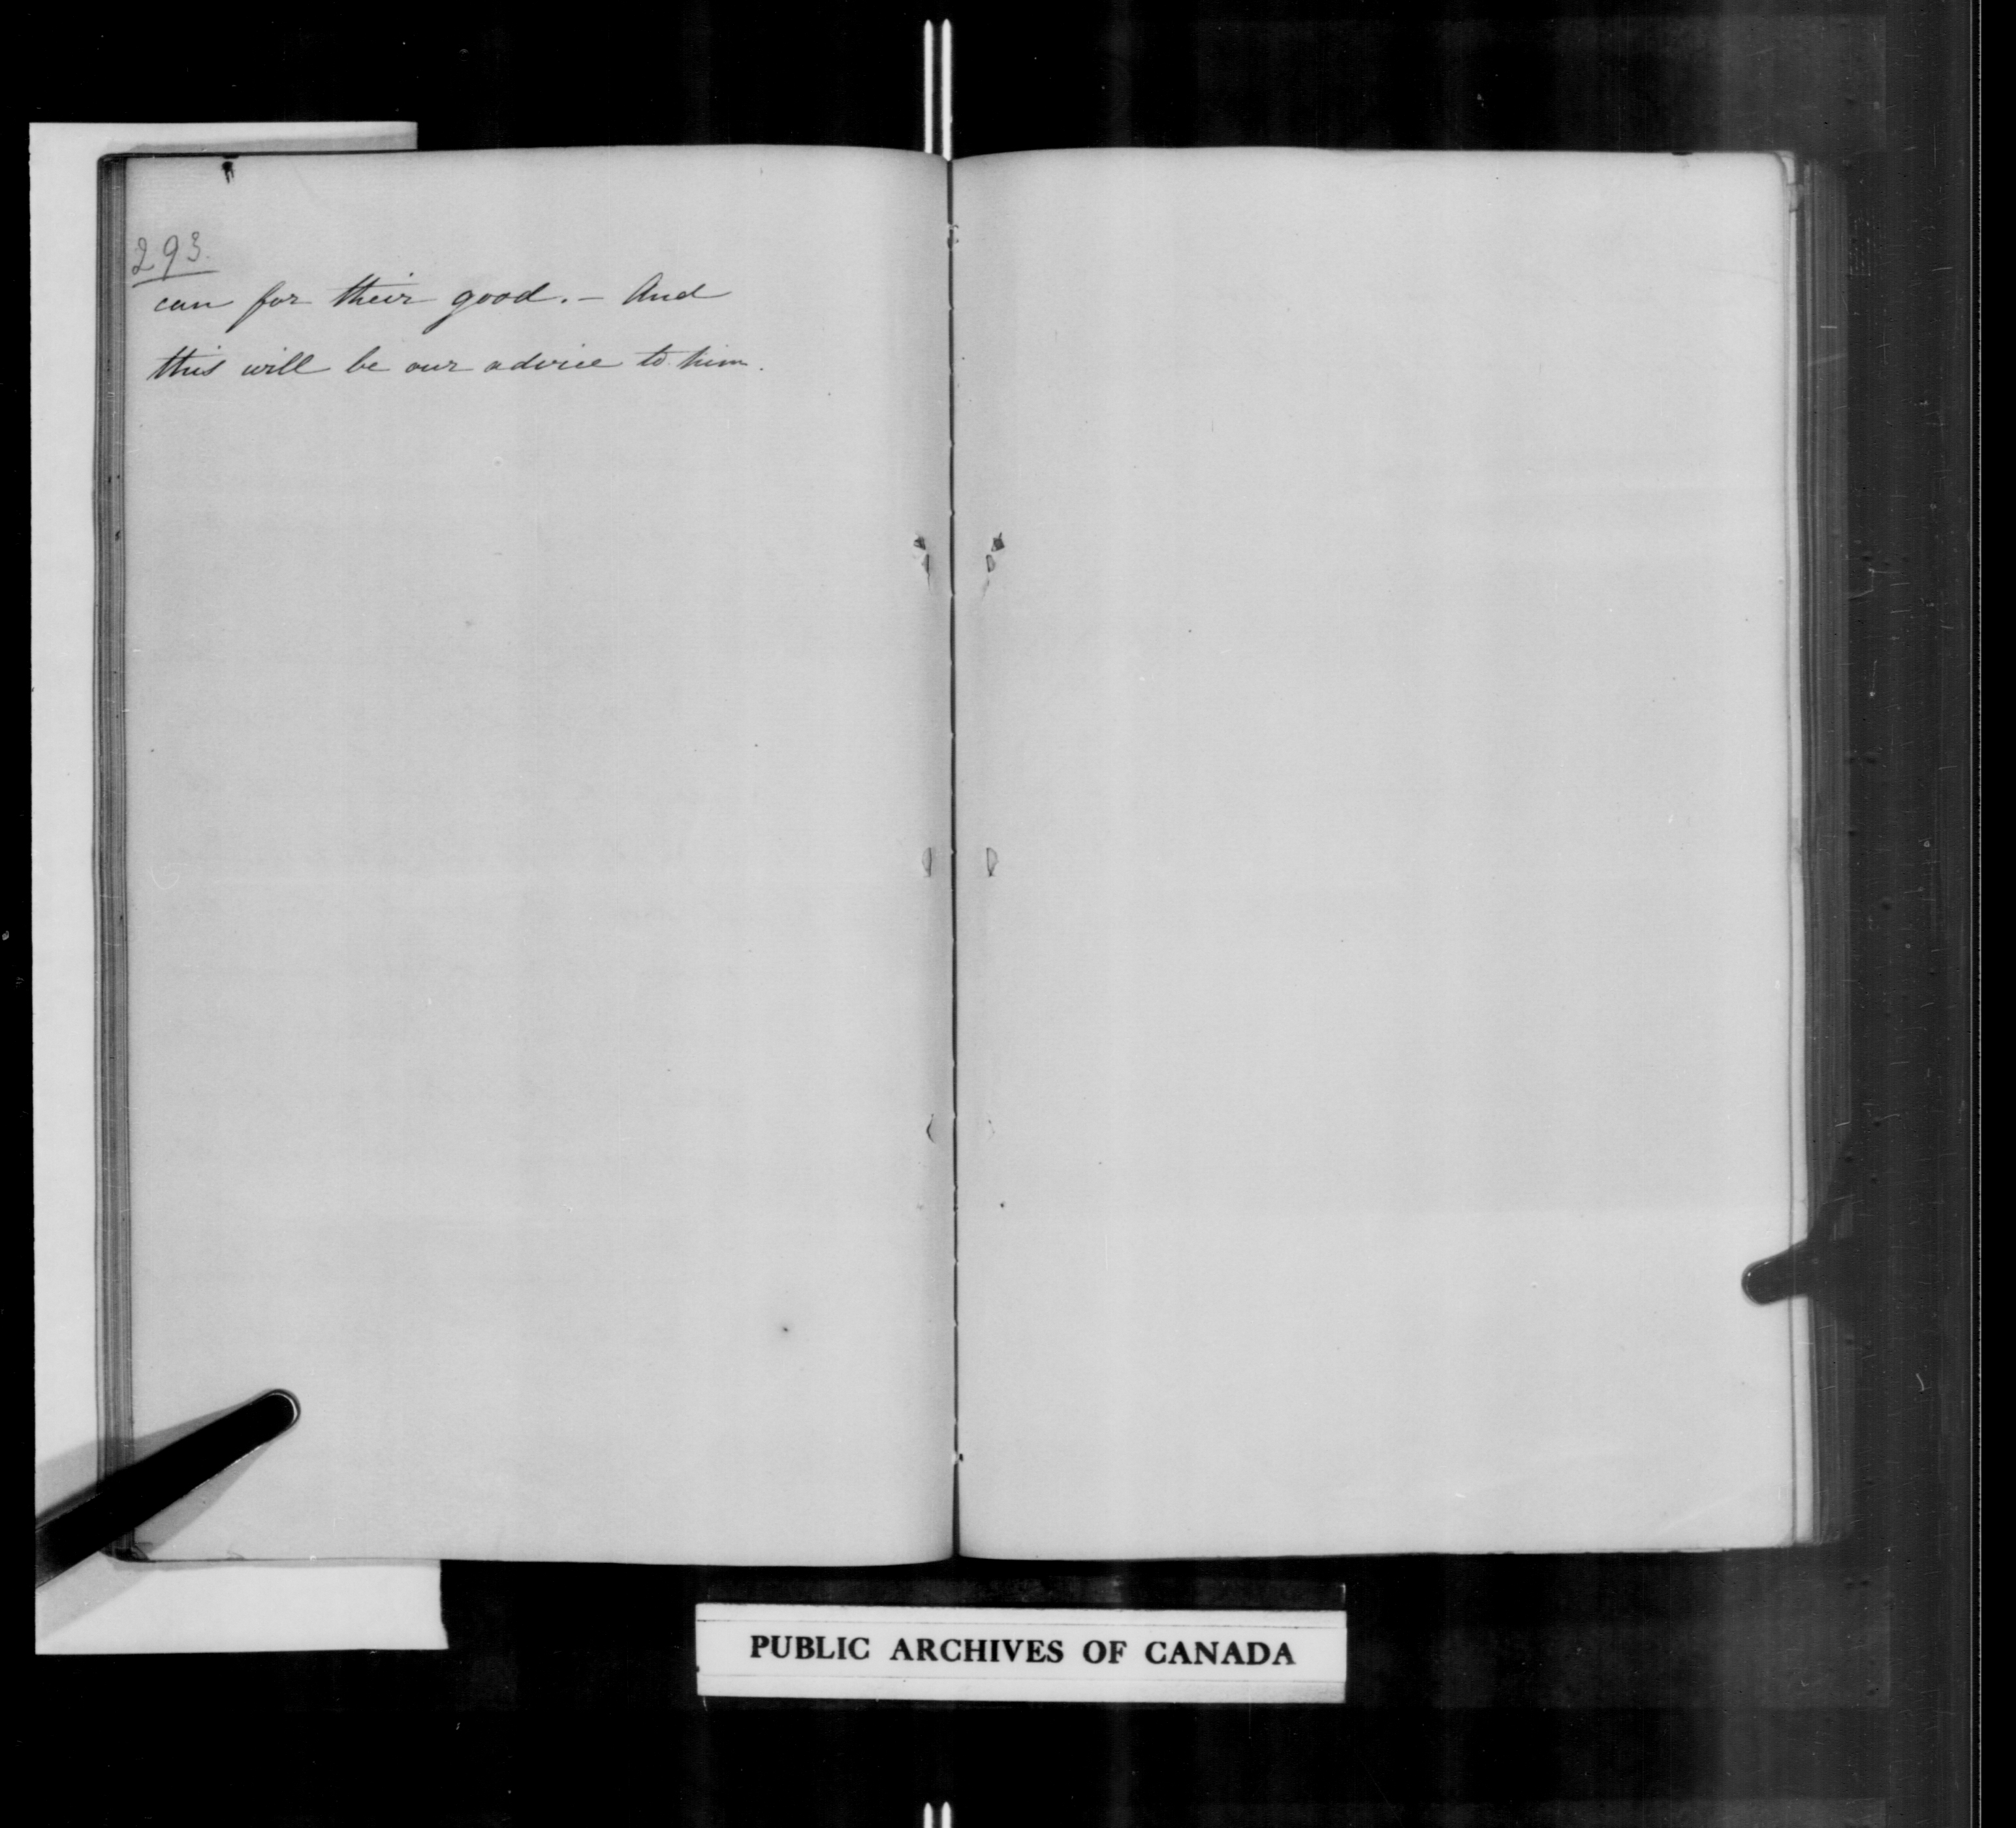 293.
can for their good. - And
this will be our advice to him.
PUBLIC ARCHIVES OF CANADA